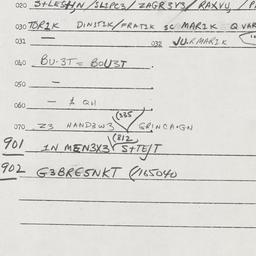 020 S+LESHN /SLSPC3/ ZAGR3V3/ RAXVU, /P
030 TOR1K DIN1T1K/FRAT1K SC MAR1K Q VAR
031 032 JURMAR1K
040 BU-3T = BOU3T
050 —
060 — & QH
(335
070 Z3 HAND3W3 GRINCA+GN
(312
901 1N MEN3X3 S+TEJT
902 G3BRESNKT (/165040